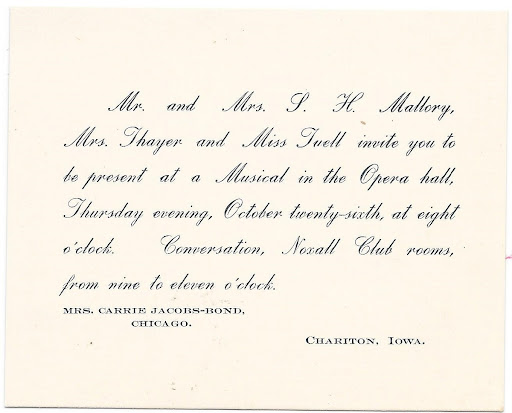 Mr. and Mrs. S. H. Mallory,
Mrs. Thayer and Miss Tuell invite you to
be present at a Musical in the Opera hall,
Thursday evening, October twenty-sixth, at eight
o'clock. Conversation, Noxall Club rooms,
from nine to eleven o'clock.
MRS. CARRIE JACOBS-BOND,
CHICAGO.
CHARITON, IOWA.